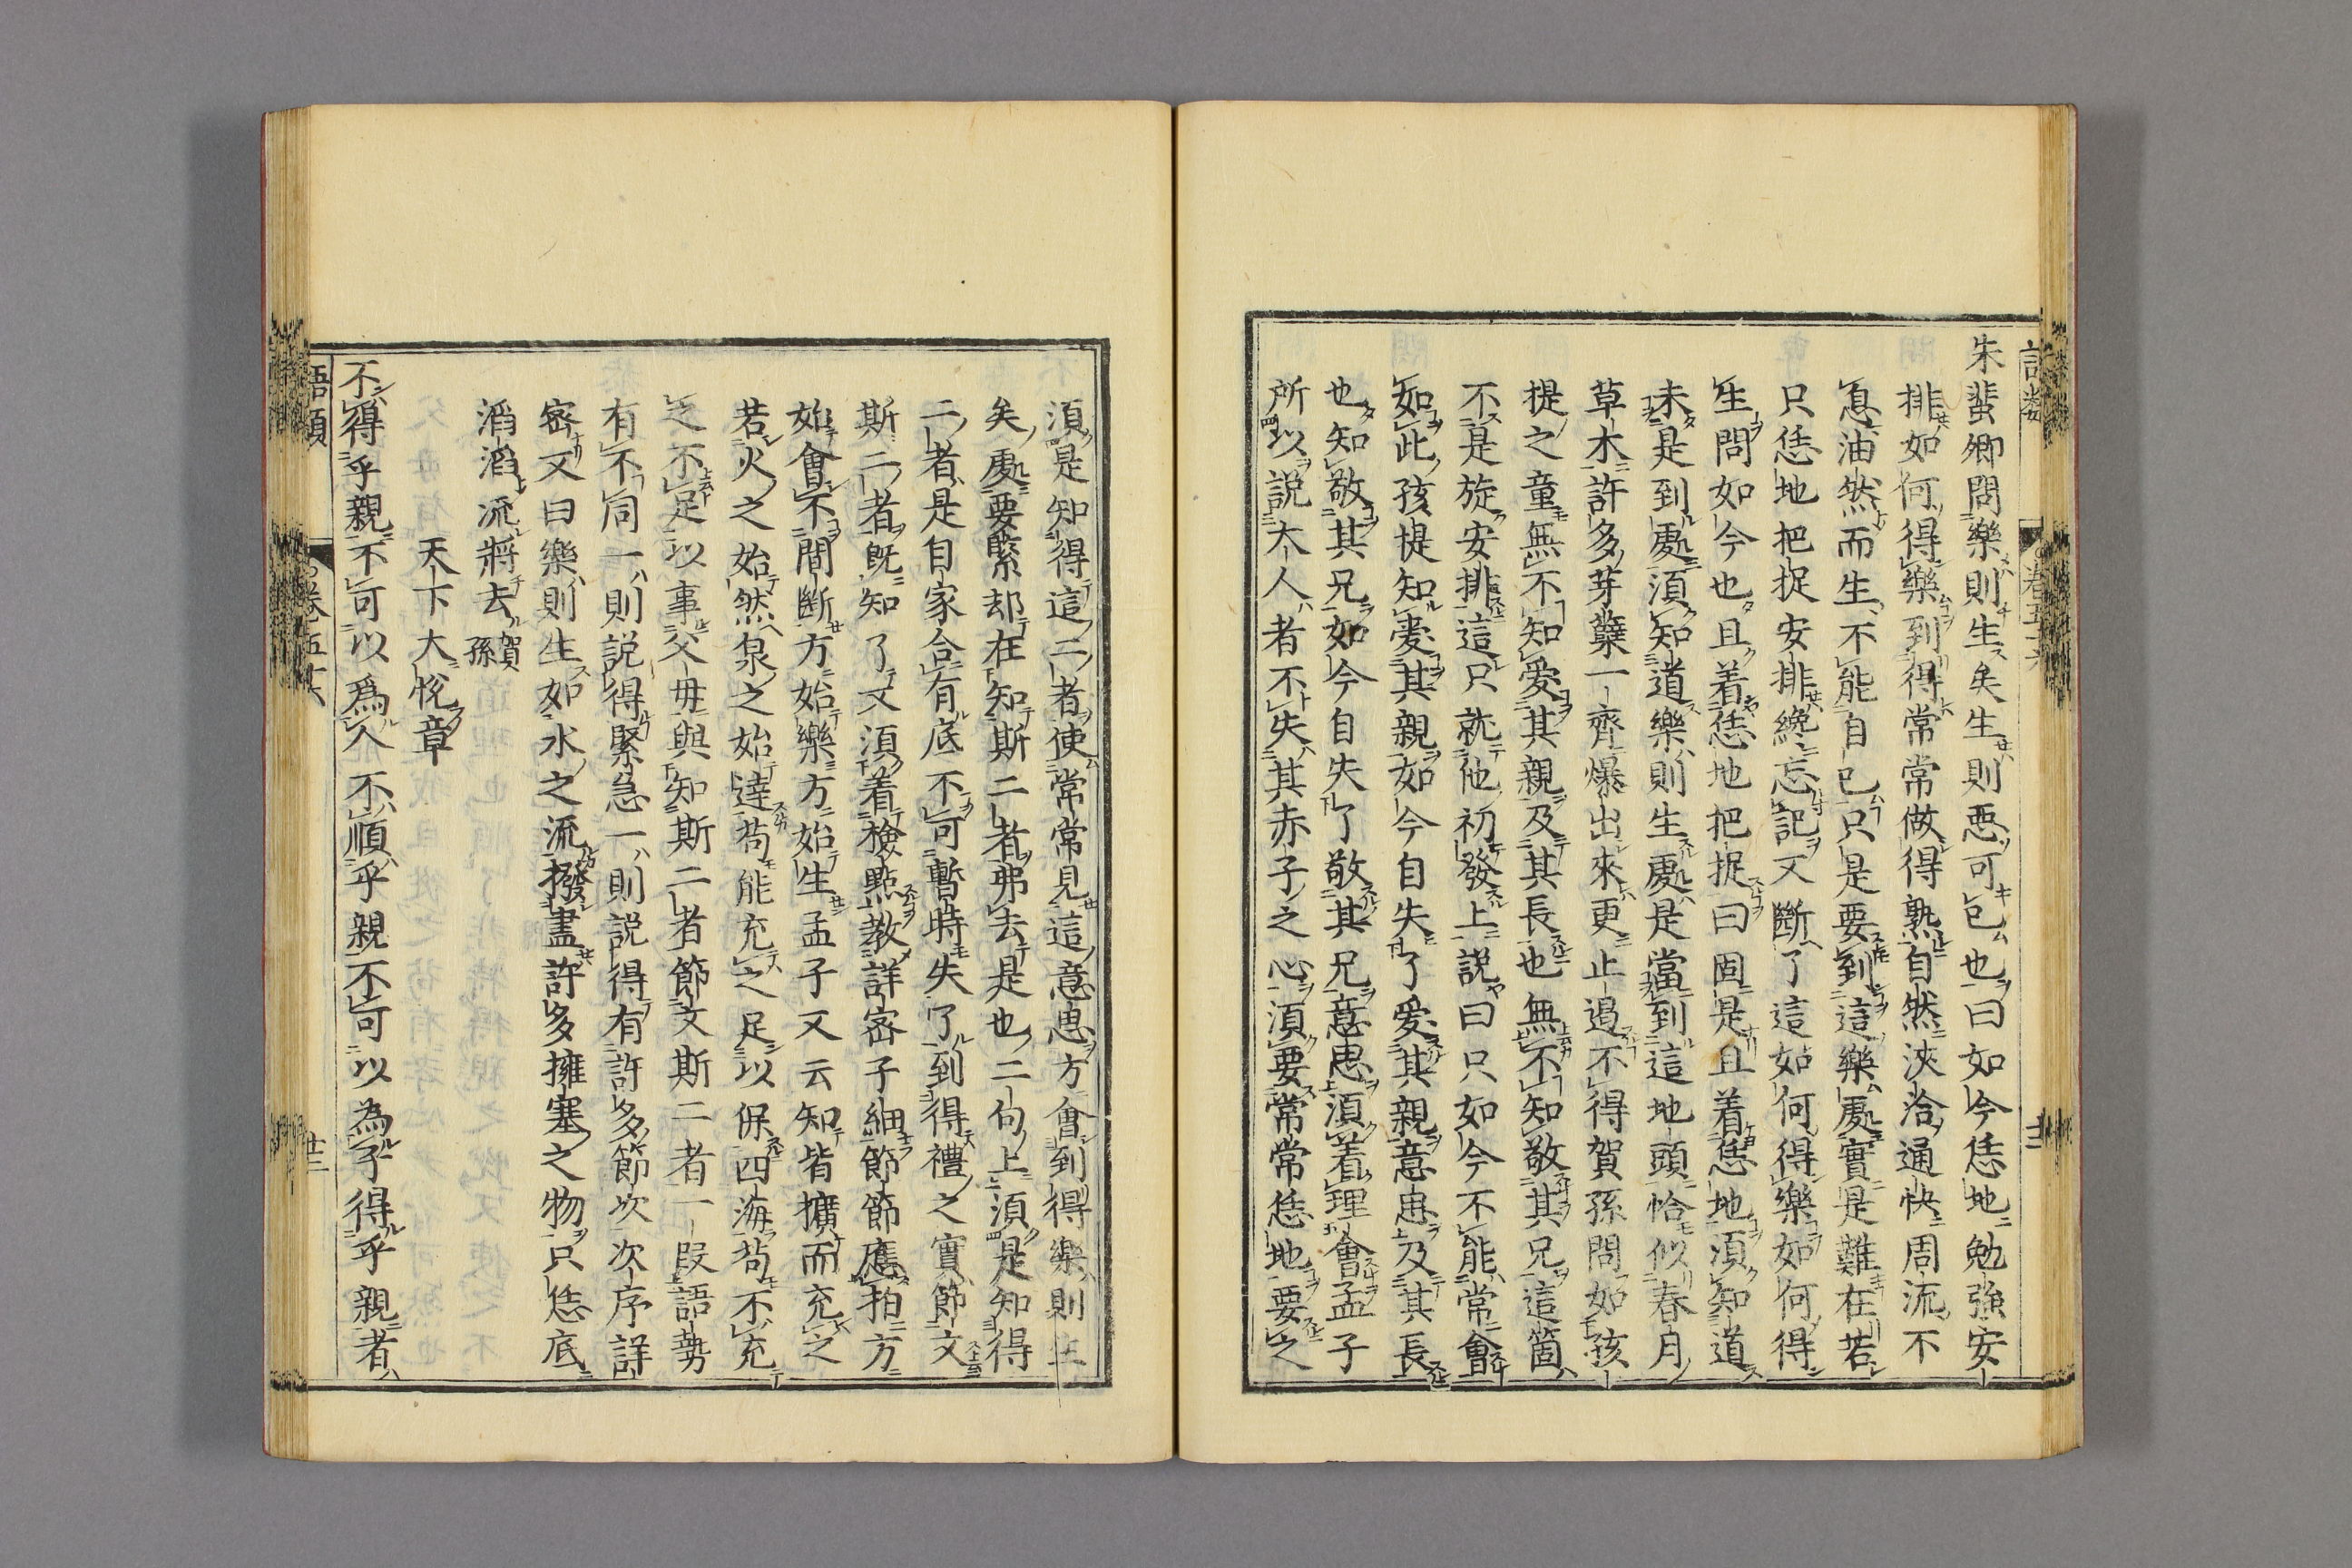 朱蜚卿問樂則生矣生則惡可已也曰如今恁地勉強安
排如何得樂到得常常做得熟自然浹洽通快周流不
息油然而生不能自已只是要到這樂處實是難在若
只恁地把捉安排纔忘記又斷了這如何得樂如何得
生問如今也且着恁地把捉曰固是且着恁地須知道
未是到處須知道樂則生處是當到這地頭恰似春月
草木許多芽蘖一齊爆出來更止遏不得賀孫問如孩
提之童無不知愛其親及其長也無不知敬其兄這箇
不是旋安排這只就他初發上說曰只如今不能常會
如此孩提知愛其親如今自失了愛其親意思及其長
也知敬其兄如今自失了敬其兄意思須着理會孟子
所以說大人者不失其赤子之心須要常常恁地要之
語類
卷五十六
廿三
須是知得這二者使常常見這意思方會到得樂則生
矣處要緊却在知斯二者弗去是也二句上須是知得
二者是自家合有底不可暫時失了到得禮之實節文
斯二者既知了又須着檢點教詳密子細節節應拍方
始會不間斷方始樂方始生孟子又云知皆擴而充之
若火之始然泉之始達苟能充之足以保四海苟不充
之不足以事父母與知斯二者節文斯二者一段語勢
有不同一則說得緊急一則說得有許多節次次序詳
密又曰樂則生如水之流撥盡許多擁塞之物只恁底
滔滔流將去賀孫
天下大悅章
不得乎親不可以爲人不順乎親不可以為子得乎親者
語類
卷五十六
廿三